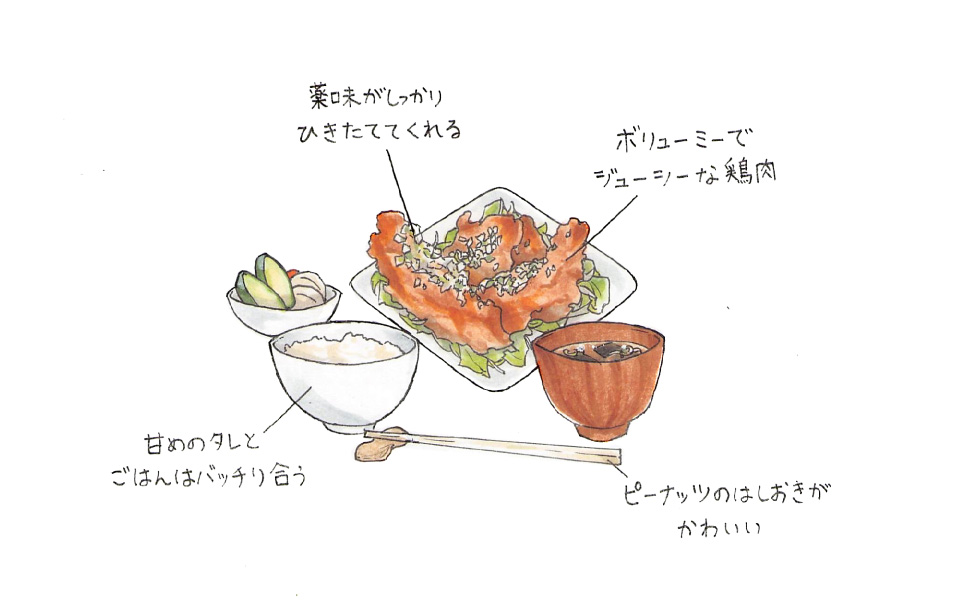 薬味がしっかり
ひきたててくれる
ボリューミーで
ジューシーな鶏肉
甘めのタレと
ごはんはバッチリ合う
ピーナッツのはしおきが
かわいい